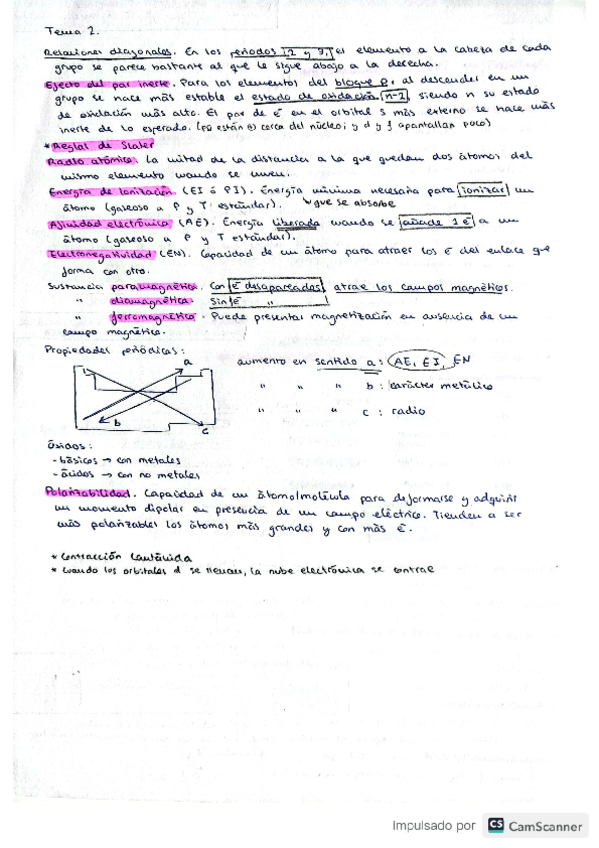 Tema 2.
Relaciones diagonales. En los periodos 2 y 3, el elemento a la cabeza de cada
grupo se parece bastante al que le sigue abajo a la derecha.
Efecto del par inerte. Para los elementos del bloque p, al descender en un
grupo se hace más estable el estado de oxidación n-2, siendo n su estado
de oxidación más alto. El par de e⁻ en el orbital s más externo se hace más
inerte de lo esperado. (ya están cerca del núcleo; y d y f apantallan poco)
* Reglas de Slater
Radio atómico. La mitad de la distancia a la que quedan dos átomos del
mismo elemento cuando se unen.
Energía de Ionización. (EI ó PI). Energía mínima necesaria para ionizar un
átomo (gaseoso a P y T estándar). ↘ que se absorbe
Afinidad electrónica (AE). Energía liberada cuando se añade 1 e⁻ a un
átomo (gaseoso a P y T estándar).
Electronegatividad (EN). Capacidad de un átomo para atraer los e⁻ del enlace que
forma con otro.
Sustancia paramagnética. Con e⁻ desapareados, atrae los campos magnéticos.
" diamagnética. Sin e⁻ "
" ferromagnético. Puede presentar magnetización en ausencia de un
campo magnético.
Propiedades periódicas:
aumento en sentido a: AE, EI, EN
" " " b: carácter metálico
" " " c: radio
a
b
c
Óxidos:
- básicos → con metales
- ácidos → con no metales
Polarizabilidad. Capacidad de un átomo/molécula para deformarse y adquirir
un momento dipolar en presencia de un campo eléctrico. Tienden a ser
más polarizables los átomos más grandes y con más e⁻.
* Contracción lantánida
* Cuando los orbitales d se llenan, la nube electrónica se contrae
Impulsado por CS CamScanner